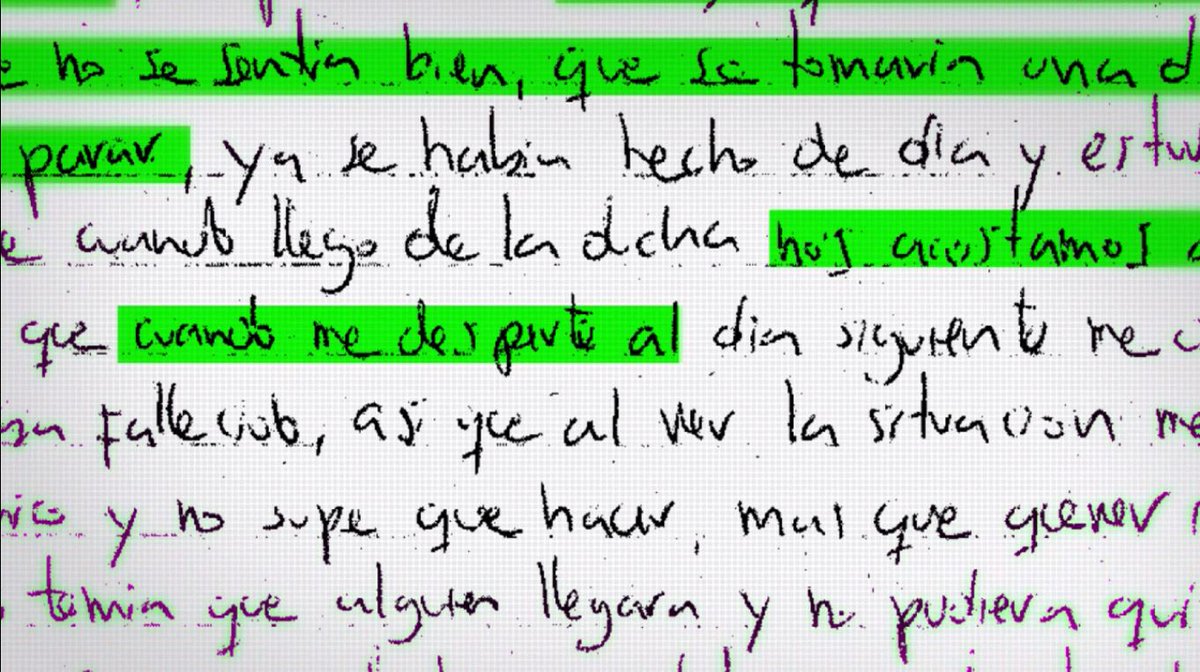 no se sentia bien, que se tomaria una d
parar, ya se habia hecho de dia y estuv
e cuando llego de la dcha nos acostamos
que cuando me desperté al dia siguiente me
fallecido, asi que al ver la situacion me
nico y no supe que hacer, mas que querer
temia que alguien llegara y no pudiera qui